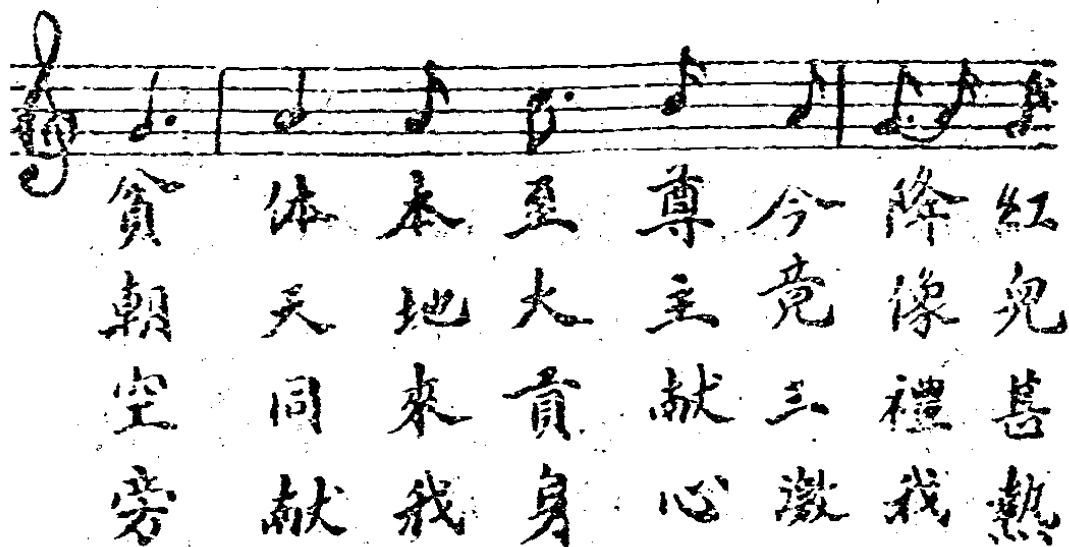 貧体本至尊今降紅
朝天地大主竟像兒
空同來貢献三禮甚
旁献我身心激我熱